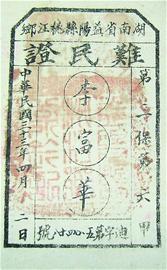 湖南省益陽縣桃江鄉
難民證
第保第六甲
李富華
中華民國三十三年四月二日
字第號